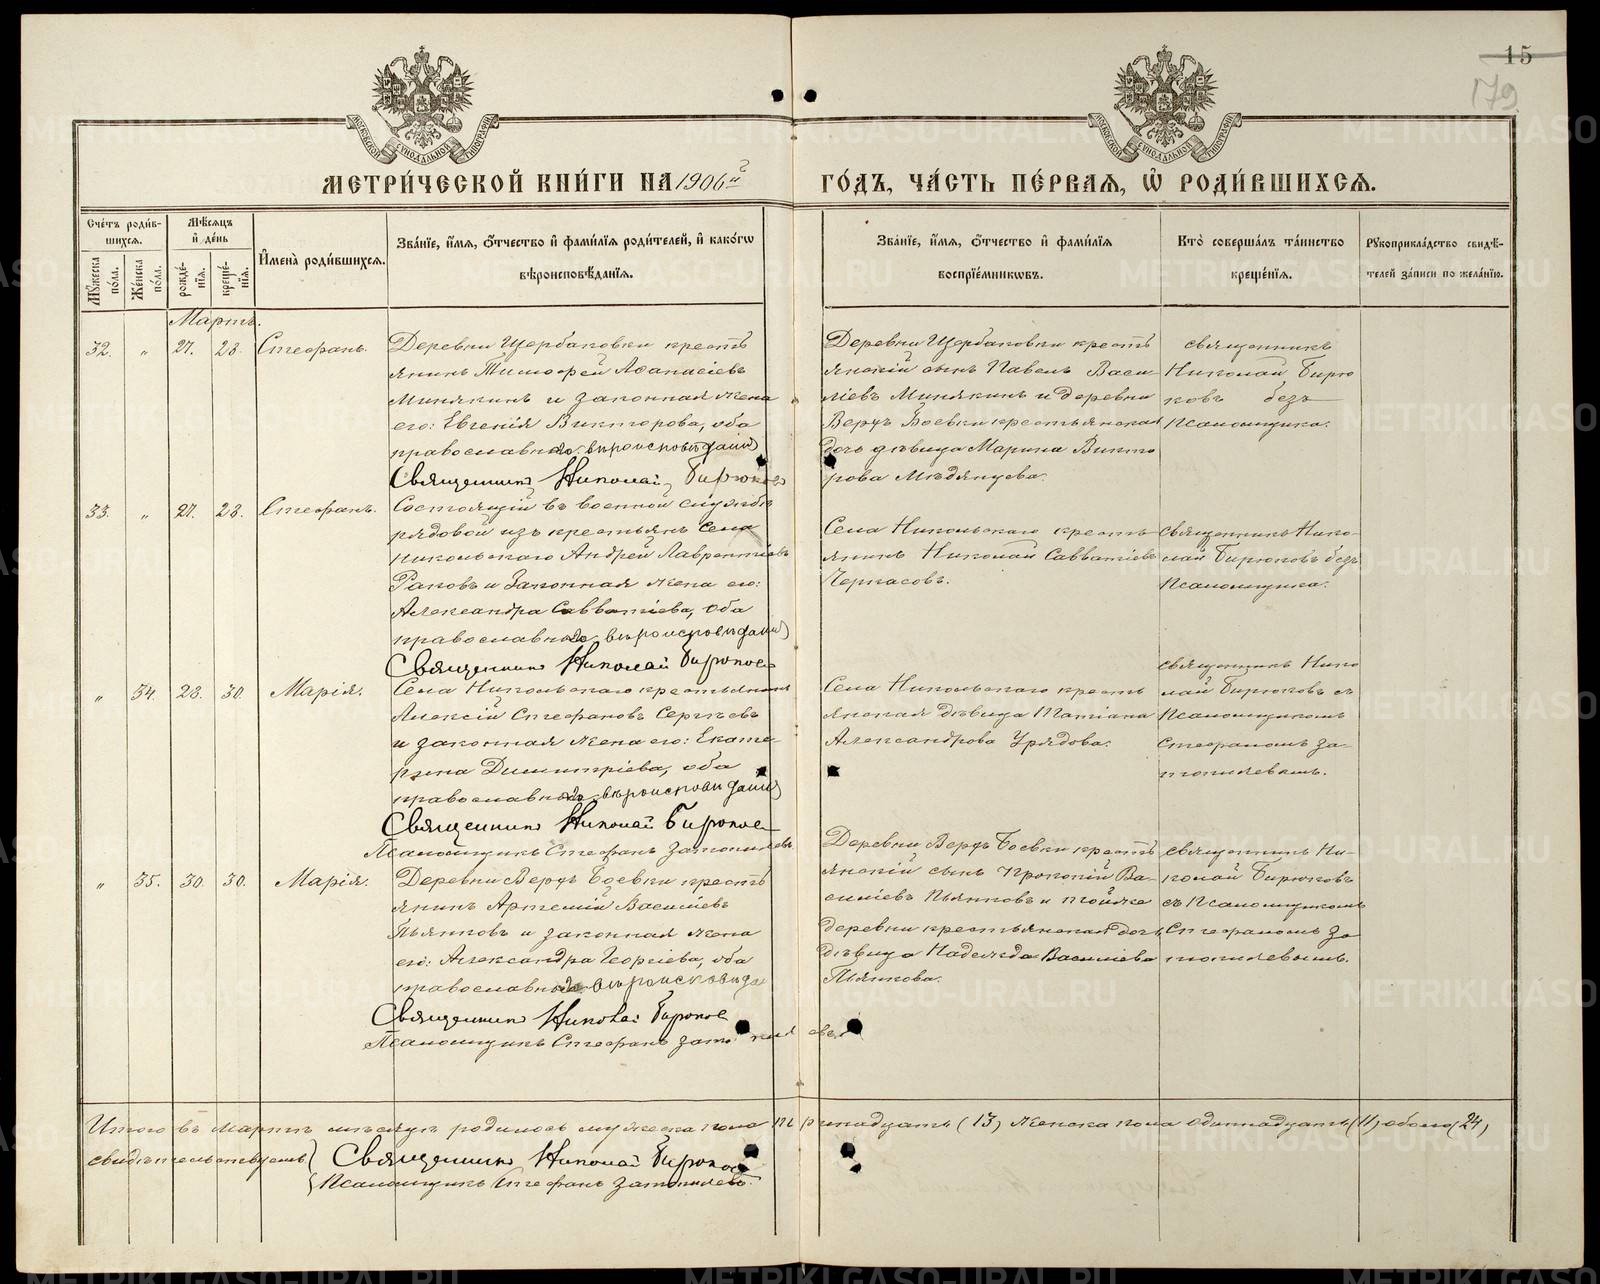 15
179
МЕТРИ́ЧЕСКОЙ КНИ́ГИ НА 1906й
ГО́ДЪ, ЧА́СТЬ ПЕ́РВАЯ, Ѡ РОДИ́ВШИХСЯ.
Сче́тъ роди́вшихся.
Мѣ́сяцъ и де́нь
Имена̀ роди́вшихся.
Зва́нїе, и́мя, о́тчество и фами́лїя роди́телей, и како́гѡ
вѣроисповѣ́данїя.
Мꙋ́жеска по́ла.
Же́нска по́ла.
рожде́нїя.
креще́нїя.
Зва́нїе, и́мя, о́тчество и фами́лїя
воспрїе́мникѡвъ.
Кто̀ соверша́лъ та́инство
креще́нїя.
Рꙋкоприкла́дство свидѣ́телей за́писи по жела́нїю.
Мартъ.
32. „ 27. 28. Стефанъ.
Деревни Щербаковки кресть
янинъ Тимофей Афанасіевъ
Минякинъ и законная жена
его: Евгенія Викторова, оба
православнаго вѣроисповѣданія
Священникъ Николай Бирюковъ
Деревни Щербаковки кресть
янскій сынъ Павелъ Васи-
ліевъ Минякинъ и деревни
Верхъ Боевки крестьянская
дочь дѣвица Марина Викто
рова Мѣдянцева.
священникъ
Николай Бирю
ковъ безъ
псаломщика.
33. „ 27. 28. Стефанъ.
Состоящій въ военной службѣ
рядовой изъ крестьянъ села
Никольскаго Андрей Лаврентіевъ
Раковъ и законная жена его:
Александра Савватіева, оба
православнаго вѣроисповѣданія
Священникъ Николай Бирюковъ
Села Никольскаго кресть
янинъ Николай Савватіевъ
Черкасовъ.
священникъ Нико-
лай Бирюковъ безъ
псаломщика.
„ 34. 28. 30. Марія.
Села Никольскаго крестьянинъ
Алексій Стефановъ Сергѣевъ
и законная жена его: Екате-
рина Димитріева, оба
православнаго вѣроисповѣданія
Священникъ Николай Бирюковъ
Псаломщикъ Стефанъ Затопляевъ
Села Никольскаго кресть
янская дѣвица Татіана
Александрова Урядова.
священникъ Нико
лай Бирюковъ съ
псаломщикомъ
Стефаномъ За-
топляевымъ.
„ 35. 30. 30. Марія.
Деревни Верхъ Боевки кресть
янинъ Артемій Василіевъ
Пьянковъ и законная жена
его: Александра Георгіева, оба
православнаго вѣроисповѣда
Священникъ Николай Бирюковъ
Псаломщикъ Стефанъ Затопляевъ
Деревни Верхъ Боевки кресть
янскій сынъ Прокопій Ва-
силіевъ Пьянковъ и тойже
деревни крестьянская дочь
дѣвица Надежда Василіева
Пьянкова.
священникъ Ни-
колай Бирюковъ
съ псаломщикомъ
Стефаномъ За
топляевымъ.
Итого въ мартѣ мѣсяцѣ родилось мужеска пола тринадцать (13) женска пола одиннадцать (11) обоего (24)
свидѣтельствуемъ
Священникъ Николай Бирюковъ
Псаломщикъ Стефанъ Затопляевъ.
METRIKI.GASO-URAL.RU